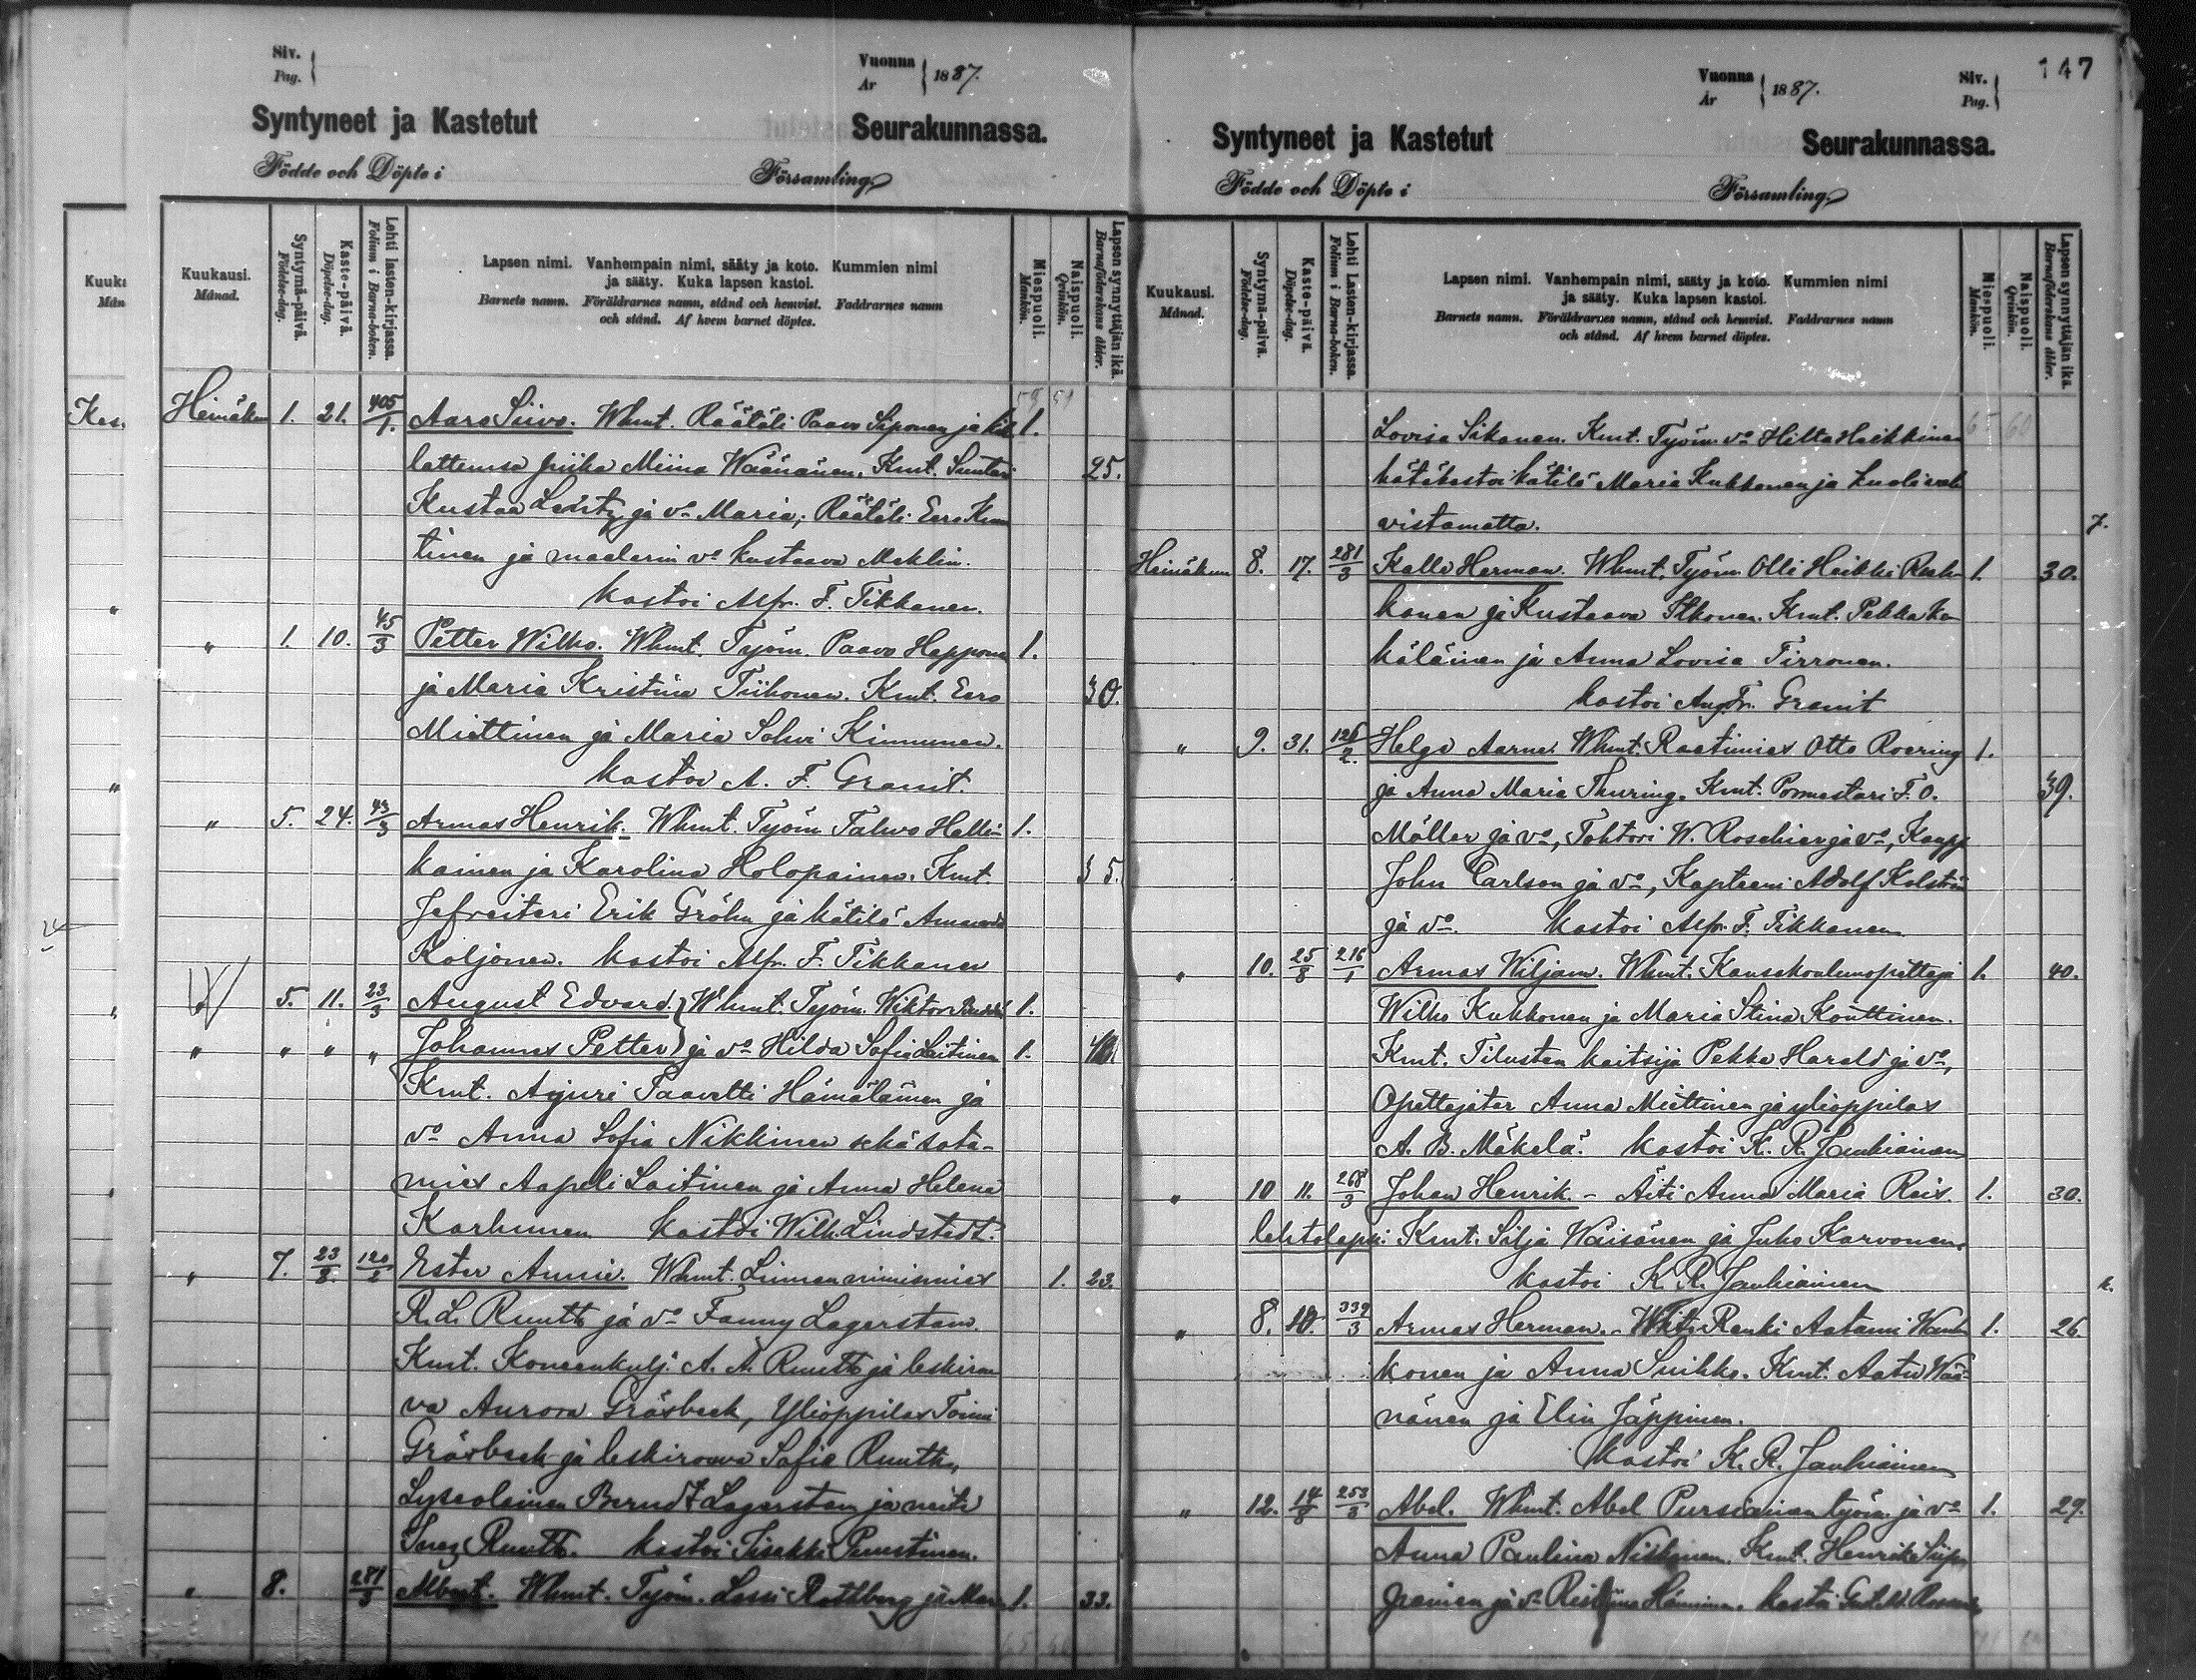 Siv.
Pag.
Vuonna
År 1887.
Syntyneet ja Kastetut Seurakunnassa.
Födde och Döpte i Församling
Kuukausi.
Månad.
Syntymä-päivä.
Födelse-dag.
Kaste-päivä.
Döpelse-dag.
Lehti lasten-kirjassa.
Folium i Barna-boken.
Lapsen nimi. Vanhempain nimi, sääty ja koto. Kummien nimi
ja sääty. Kuka lapsen kastoi.
Barnets namn. Föräldrarnes namn, stånd och hemvist. Faddrarnes namn
och stånd. Af hvem barnet döptes.
Miespuoli.
Mankön.
Naispuoli.
Qvinkön.
Lapsen synnyttäjän ikä.
Barnaföderskans ålder.
Heinäkuu 1. 21. 405/1. Aaro Siivo. Whmt. Räätäli Paavo Siponen ja kih 1.
lattunsa piika Miina Wäänänen. Kmt. Suntari 25.
Kustaa Lentz ja vo Maria; Räätäli Eero Kun
tinen ja maalarin vo Kustaava Meklin.
Kastoi Alfr. F. Tikkanen.
" 1. 10. 45/3 Petter Wilho. Whmt. Työm. Paavo Happonen 1.
ja Maria Kristina Tiihonen. Kmt. Eero 30.
Miettinen ja Maria Sohvi Kinnunen.
Kastoi A. F. Granit.
" 5. 24. 43/3 Armas Henrik. Whmt. Työm. Tahvo Halli- 1.
kainen ja Karolina Holopainen. Kmt. 35.
Jefreiteri Erik Gröhn ja kätilö Amanda
Koljonen. Kastoi Alfr. F. Tikkanen
5. 11. 23/3 August Edvard. Whmt. Työm. Wiktor 1.
" " " " Johannes Petter ja vo Hilda Sofia Laitinen 1.
Kmt. Ajuri Paavetti Hämäläinen ja
vo Anna Sofia Nikkinen sekä sota-
mies Aapeli Laitinen ja Anna Helena
Karhunen Kastoi Wilh. Lindstedt.
" 7. 23/8. 120/2 Ester Annie. Whmt. Linnan nimismies 1. 23.
R. L. Ruuth ja vo Fanny Lagerstam.
Kmt. Koneenkulj. A. A. Ruuth ja leskirou
va Aurora Gräsbeck, Ylioppilas Toimi
Gräsbeck ja leskirouva Sofie Ruuth,
Lyseolainen Berndt Lagerstam ja neiti
Inez Ruuth. Kastoi Iisakki Punstinen.
" 8. 281/3 Albert. Whmt. Työm. Lassi Rothberg ja Mar 1. 33.
147
Vuonna
År 1887.
Siv.
Pag.
Syntyneet ja Kastetut Seurakunnassa.
Födde och Döpte i Församling
Kuukausi.
Månad.
Syntymä-päivä.
Födelse-dag.
Kaste-päivä.
Döpelse-dag.
Lehti Lasten-kirjassa.
Folium i Barna-boken.
Lapsen nimi. Vanhempain nimi, sääty ja koto. Kummien nimi
ja sääty. Kuka lapsen kastoi.
Barnets namn. Föräldrarnes namn, stånd och hemvist. Faddrarnes namn
och stånd. Af hvem barnet döptes.
Miespuoli.
Mankön.
Naispuoli.
Qvinkön.
Lapsen synnyttäjän ikä.
Barnaföderskans ålder.
Lovisa Sikanen. Kmt. Työm. vo Hilta Heikkinen
hätäkastoi kätilö Maria Kukkonen ja kuoli vah
vistamatta.
Heinäkuu 8. 17. 281/3 Kalle Herman. Whmt. Työm. Olli Heikki Reh 1. 30.
konen ja Kustaava Itkonen. Kmt. Pekka Ka
käläinen ja Anna Lovisa Tirronen.
Kastoi Aug. Fr. Granit
" 9. 31. 126/2. Helge Aarne. Whmt. Raatimies Otto Roering 1.
ja Anna Maria Thuring. Kmt. Pormestari F. O. 39.
Möller ja vo, Tohtori W. Roschier ja vo, Kaupp
John Carlson ja vo, Kapteeni Adolf Kolström
ja vo. Kastoi Alfr. F. Tikkanen
" 10. 25/8 216/1 Armas Wiljam. Whmt. Kansakoulunopettaja 1. 40.
Wilho Kukkonen ja Maria Stina Konttinen.
Kmt. Tilusten hoitsija Pekka Harald ja vo,
Opettajatar Anna Miettinen ja ylioppilas
A. B. Mäkelä. Kastoi K. R. Jauhiainen
" 10 11. 268/3 Johan Henrik. - Äiti Anna Maria Reis. 1. 30.
lehtolapsi. Kmt. Silja Wäisänen ja Juho Karvonen.
Kastoi K. R. Jauhiainen
" 8. 10. 339/3 Armas Herman. - Whmt. Renki Aatami 1. 26
konen ja Anna Suihko. Kmt. Aatu Wää-
nänen ja Elin Jäppinen.
Kastoi K. R. Jauhiainen
" 12. 14/8 253/3 Abel. Whmt. Abel Pursiainen työm. ja vo 1. 29.
Anna Paulina Niskanen. Kmt. Henrik
ja vo Ristiina Hänninen. Kastoi